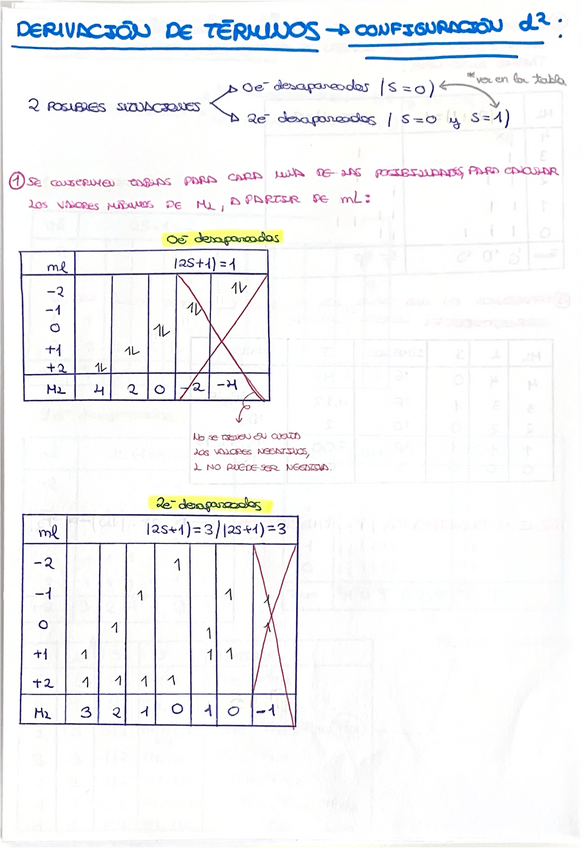 DERIVACIÓN DE TÉRMINOS → CONFIGURACIÓN d²:
2 POSIBLES SITUACIONES
0e⁻ desapareados (S=0)
*ver en la tabla
2e⁻ desapareados (S=0 y S=1)
① SE CONSTRUYEN TABLAS PARA CADA UNA DE LAS POSIBILIDADES, PARA CALCULAR
LOS VALORES MÁXIMOS DE ML, A PARTIR DE mL:
0e⁻ desapareados
ml (2S+1)=1
-2 1L
-1 1L
0 1L
+1 1L
+2 1L
ML 4 2 0 -2 -4
NO SE TIENEN EN CUENTA
LOS VALORES NEGATIVOS,
L NO PUEDE SER NEGATIVA.
2e⁻ desapareados
ml (2S+1)=3/(2S+1)=3
-2 1
-1 1 1 1
0 1 1 1
+1 1 1 1
+2 1 1 1 1
ML 3 2 1 0 1 0 -1